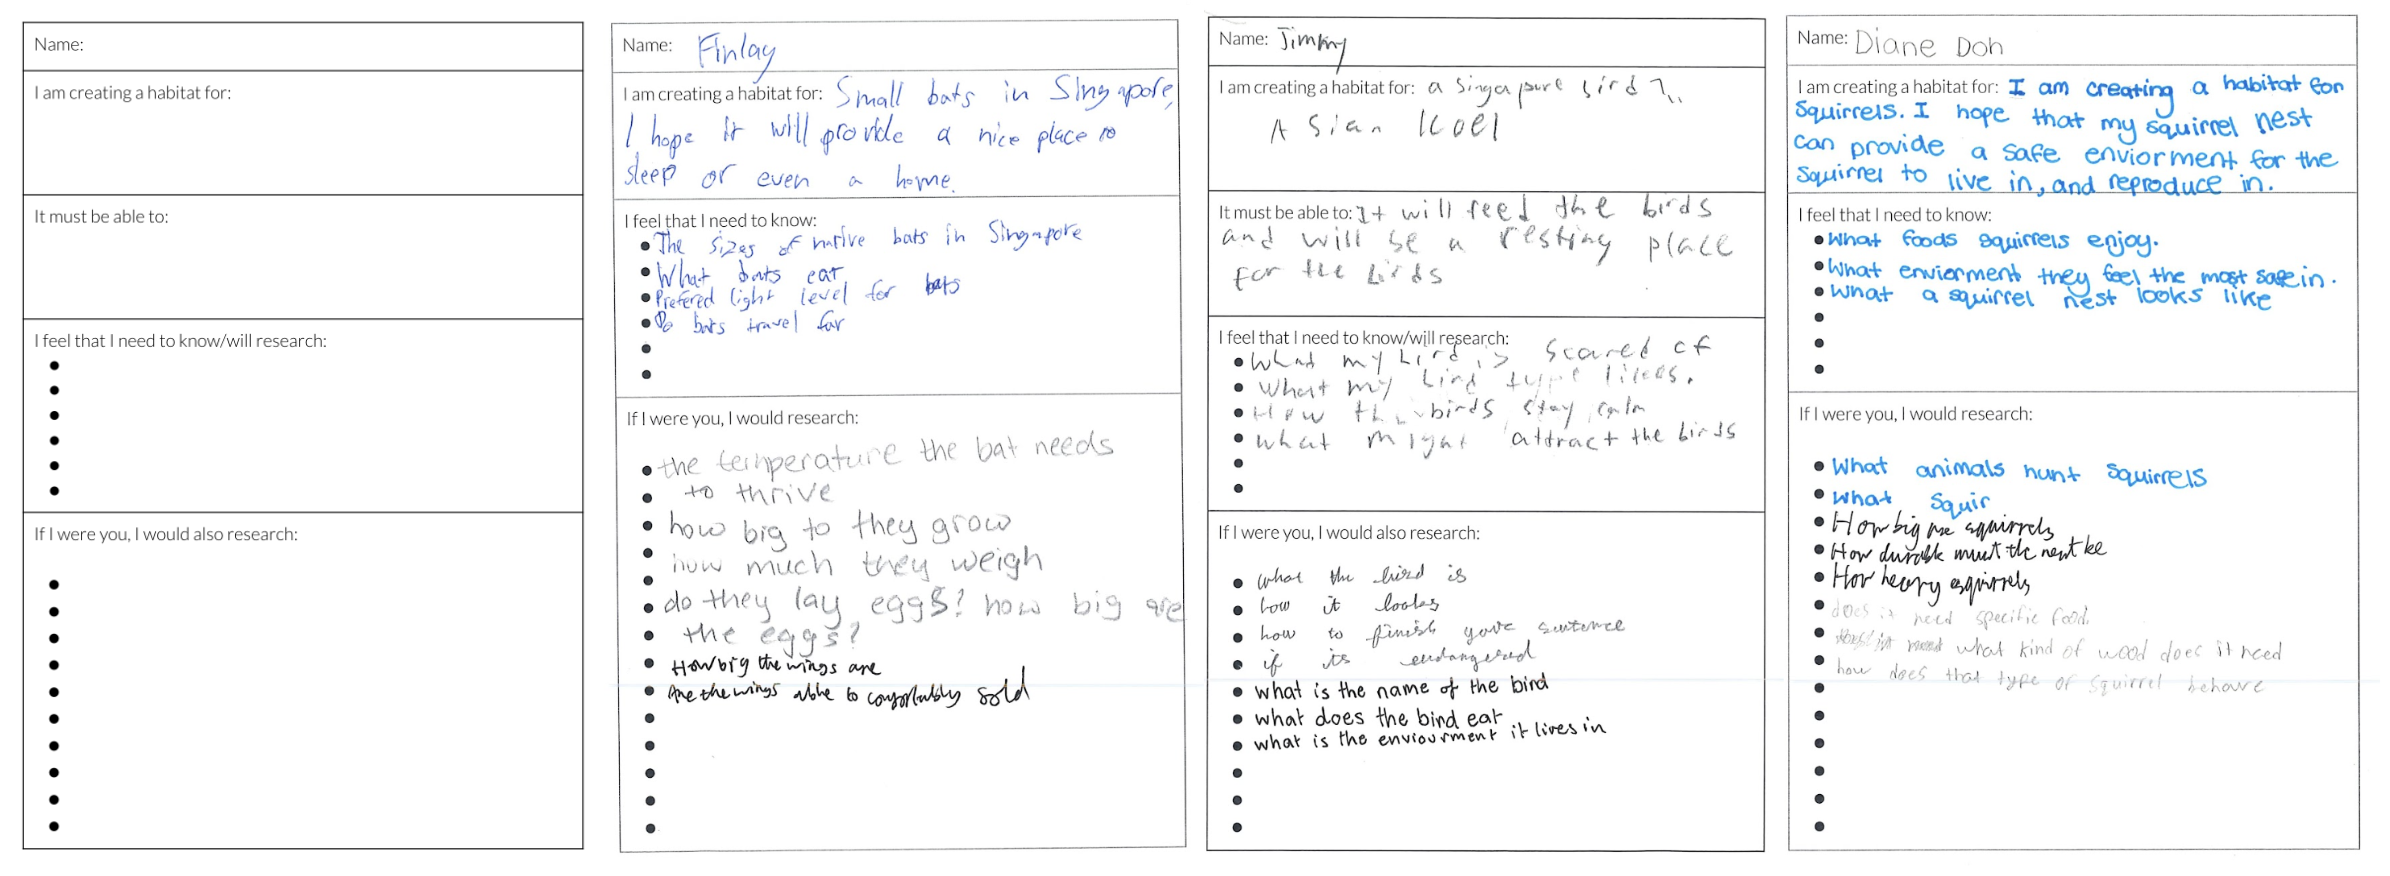 Name:
I am creating a habitat for:
It must be able to:
I feel that I need to know/will research:
If I were you, I would also research:
Name: Finlay
I am creating a habitat for: Small bats in Singapore,
I hope it will provide a nice place to
sleep or even a home.
I feel that I need to know:
The sizes of native bats in Singapore
What bats eat
Prefered light level for bats
Do bats travel far
If I were you, I would research:
the temperature the bat needs
to thrive
how big to they grow
how much they weigh
do they lay eggs? how big are
the eggs?
How big the wings are
Are the wings able to comfortably fold
Name: Jimmy
I am creating a habitat for: a Singapure bird
Asian Koel
It must be able to: It will feed the birds
and will be a resting place
for the birds
I feel that I need to know/will research:
What my bird is scared of
What my bird type likes.
How the birds stay calm
what might attract the birds
If I were you, I would also research:
what the bird is
how it looks
how to finish your sentence
if its endangered
what is the name of the bird
what does the bird eat
what is the enviourment it lives in
Name: Diane Doh
I am creating a habitat for: I am creating a habitat for
Squirrels. I hope that my squirrel nest
can provide a safe enviorment for the
squirrel to live in, and reproduce in.
I feel that I need to know:
What foods squirrels enjoy.
What enviorment they feel the most safe in.
What a squirrel nest looks like
If I were you, I would research:
What animals hunt squirrels
What Squir
How big are squirrels
How durable must the nest be
How heavy squirrels
does it need specific food.
what kind of wood does it need
how does that type of squirrel behave